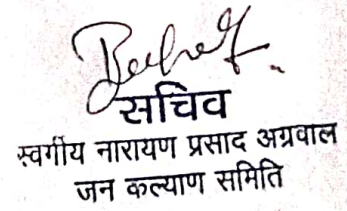 सचिव
स्वर्गीय नारायण प्रसाद अग्रवाल
जन कल्याण समिति